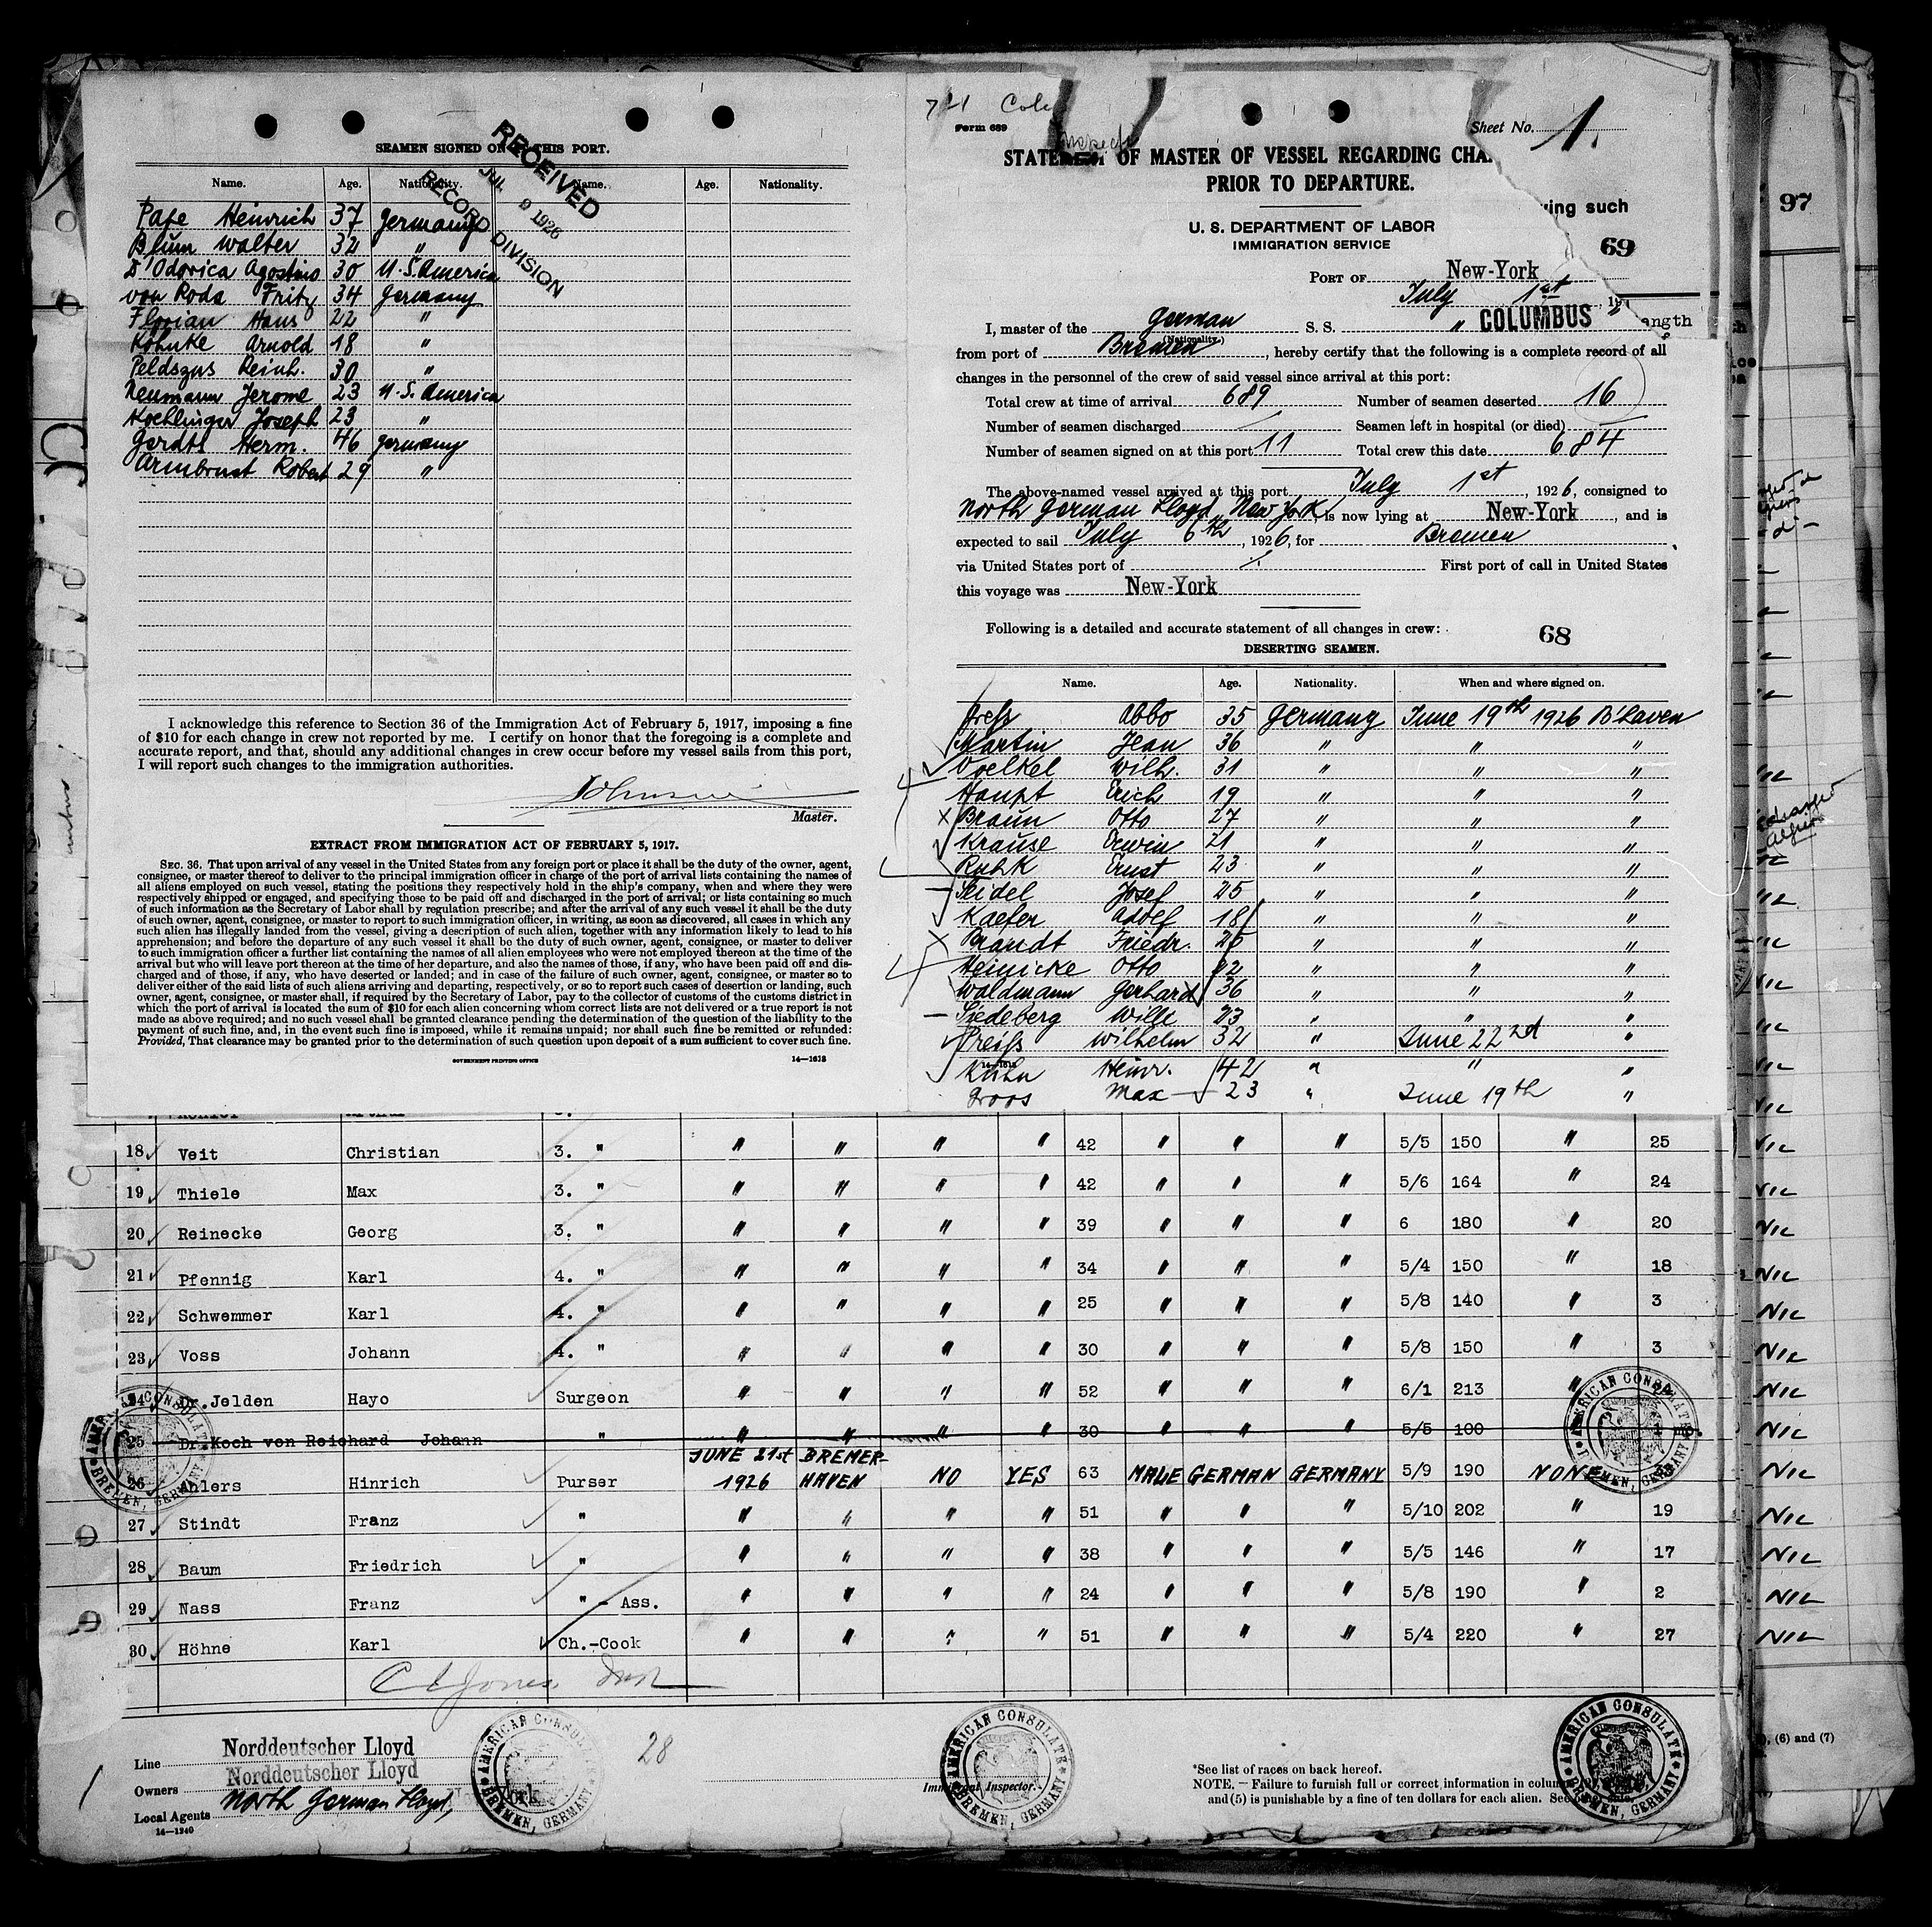 SEAMEN SIGNED ON AT THIS PORT.
Name. Age. Nationality. Name. Age. Nationality.
RECEIVED
JUL 9 1926
RECORD DIVISION
Pape Heinrich 37 Germany
Blum Walter 32 "
D'Odorica Agostino 30 U.S. America
von Roda Fritz 34 Germany
Florian Hans 22 "
Köhnke Arnold 18 "
Peldszus Reinh. 30 "
Neumann Jerome 23 U.S. America
Koehlinger Joseph 23 "
Gerdts Herm. 46 Germany
Armbrust Robert 29 "
I acknowledge this reference to Section 36 of the Immigration Act of February 5, 1917, imposing a fine
of $10 for each change in crew not reported by me. I certify on honor that the foregoing is a complete and
accurate report, and that, should any additional changes in crew occur before my vessel sails from this port,
I will report such changes to the immigration authorities.
Master.
EXTRACT FROM IMMIGRATION ACT OF FEBRUARY 5, 1917.
SEC. 36. That upon arrival of any vessel in the United States from any foreign port or place it shall be the duty of the owner, agent,
consignee, or master thereof to deliver to the principal immigration officer in charge of the port of arrival lists containing the names of
all aliens employed on such vessel, stating the positions they respectively hold in the ship's company, when and where they were
respectively shipped or engaged, and specifying those to be paid off and discharged in the port of arrival; or lists containing so much
of such information as the Secretary of Labor shall by regulation prescribe; and after the arrival of any such vessel it shall be the duty
of such owner, agent, consignee, or master to report to such immigration officer, in writing, as soon as discovered, all cases in which any
such alien has illegally landed from the vessel, giving a description of such alien, together with any information likely to lead to his
apprehension; and before the departure of any such vessel it shall be the duty of such owner, agent, consignee, or master to deliver
to such immigration officer a further list containing the names of all alien employees who were not employed thereon at the time of the
arrival but who will leave port thereon at the time of her departure, and also the names of those, if any, who have been paid off and dis-
charged and of those, if any, who have deserted or landed; and in case of the failure of such owner, agent, consignee, or master so to
deliver either of the said lists of such aliens arriving and departing, respectively, or so to report such cases of desertion or landing, such
owner, agent, consignee, or master shall, if required by the Secretary of Labor, pay to the collector of customs of the customs district in
which the port of arrival is located the sum of $10 for each alien concerning whom correct lists are not delivered or a true report is not
made as above required; and no such vessel shall be granted clearance pending the determination of the question of the liability to the
payment of such fine, and, in the event such fine is imposed, while it remains unpaid; nor shall such fine be remitted or refunded:
Provided, That clearance may be granted prior to the determination of such question upon deposit of a sum sufficient to cover such fine.
GOVERNMENT PRINTING OFFICE 14—1613
Form 689 Sheet No. 1.
STATEMENT OF MASTER OF VESSEL REGARDING CHA
PRIOR TO DEPARTURE.
ving such
97
U. S. DEPARTMENT OF LABOR
IMMIGRATION SERVICE
69
PORT OF New-York
July 1st, 19
I, master of the German S. S. " COLUMBUS
(Nationality.)
ength
from port of Bremen, hereby certify that the following is a complete record of all
changes in the personnel of the crew of said vessel since arrival at this port:
Total crew at time of arrival 689 Number of seamen deserted 16
Number of seamen discharged Seamen left in hospital (or died)
Number of seamen signed on at this port 11 Total crew this date 684
The above-named vessel arrived at this port July 1st, 1926, consigned to
North German Lloyd, New York, is now lying at New-York, and is
expected to sail July 6th, 1926, for Bremen
via United States port of First port of call in United States
this voyage was New-York
Following is a detailed and accurate statement of all changes in crew:
68
DESERTING SEAMEN.
Name. Age. Nationality. When and where signed on.
Abbo 35 Germany June 19th 1926 B'haven
Martin Jean 36 " " "
Voelkel Wilh. 31 " " "
Haupt Erich 19 " " "
Braun Otto 27 " " "
Krause Erwin 21 " " "
Ruhk Ernst 23 " " "
Seidel Josef 25 " " "
Kaefer Adolf 18 " " "
Brandt Friedr. 26 " " "
Heinicke Otto " " "
Waldmann Gerhard 36 " " "
Siedeberg Willi 23 " " "
Preiß Wilhelm 32 " June 22nd "
Kühn Heinr. 42 " " "
Groos Max 23 " June 19th "
18 Veit Christian 3. " " " " " 42 " " " 5/5 150 " 25
19 Thiele Max 3. " " " " " 42 " " " 5/6 164 " 24
20 Reinecke Georg 3. " " " " " 39 " " " 6 180 " 20
21 Pfennig Karl 4. " " " " " 34 " " " 5/4 150 " 18
22 Schwemmer Karl 4. " " " " " 25 " " " 5/8 140 " 3
23 Voss Johann 4. " " " " " 30 " " " 5/8 150 " 3
24 Dr.Jelden Hayo Surgeon " " " " 52 " " " 6/1 213 "
25 Dr.Koch von Reichard Johann " " " " " 30 " " " 5/5 100
JUNE 21st BREMER-
26 Ahlers Hinrich Purser 1926 HAVEN NO YES 63 MALE GERMAN GERMANY 5/9 190 NONE
27 Stindt Franz " " " " " 51 " " " 5/10 202 " 19
28 Baum Friedrich " " " " " 38 " " " 5/5 146 " 17
29 Nass Franz " - Ass. " " " " 24 " " " 5/8 190 " 2
30 Höhne Karl Ch.-Cook " " " " 51 " " " 5/4 220 " 27
NIL
NIL
NIL
NIL
NIL
NIL
NIL
NIL
NIL
NIL
NIL
NIL
NIL
28
Line Norddeutscher Lloyd
Owners Norddeutscher Lloyd
Local Agents North German Lloyd,
14—1240
AMERICAN CONSULATE
BREMEN, GERMANY
Immigrant Inspector.
*See list of races on back hereof.
NOTE.— Failure to furnish full or correct information in columns
and (5) is punishable by a fine of ten dollars for each alien. See other side.
, (6) and (7)